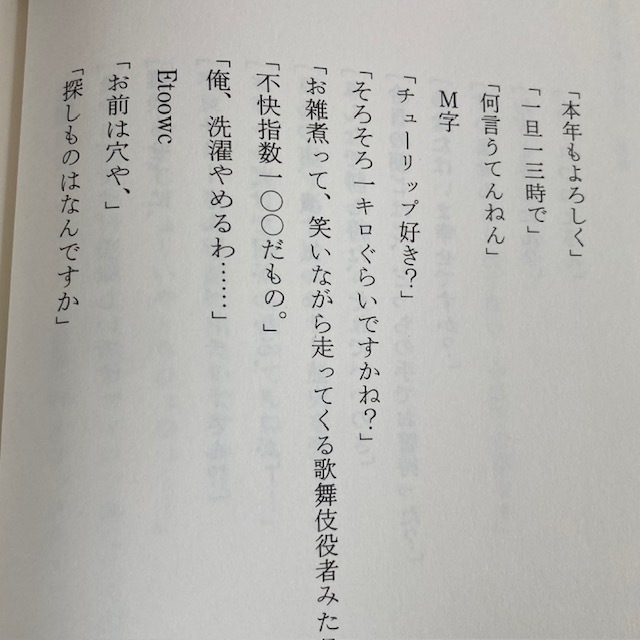 「本年もよろしく」
「一旦一三時で」
「何言うてんねん」
M字
「チューリップ好き？」
「そろそろ一キロぐらいですかね？」
「お雑煮って、笑いながら走ってくる歌舞伎役者みた
「不快指数一〇〇だもの。」
「俺、洗濯やめるわ……」
Etoowc
「お前は穴や、」
「探しものはなんですか」